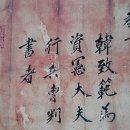 韓致範爲
資憲大夫
行兵曹判
書者